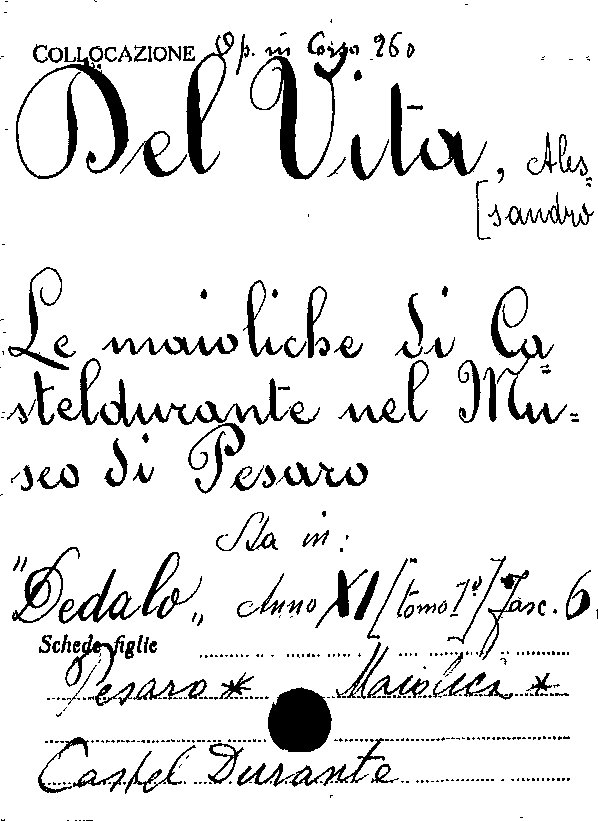 COLLOCAZIONE Op. in Corso 260
Del Vita, Ales=
[sandro
Le maioliche di Ca=
steldurante nel Mu=
seo di Pesaro
Sta in:
"Dedalo„ Anno XI [tomo 1º] fasc. 6.
Schede figlie
Pesaro * Maiolica *
Castel Durante